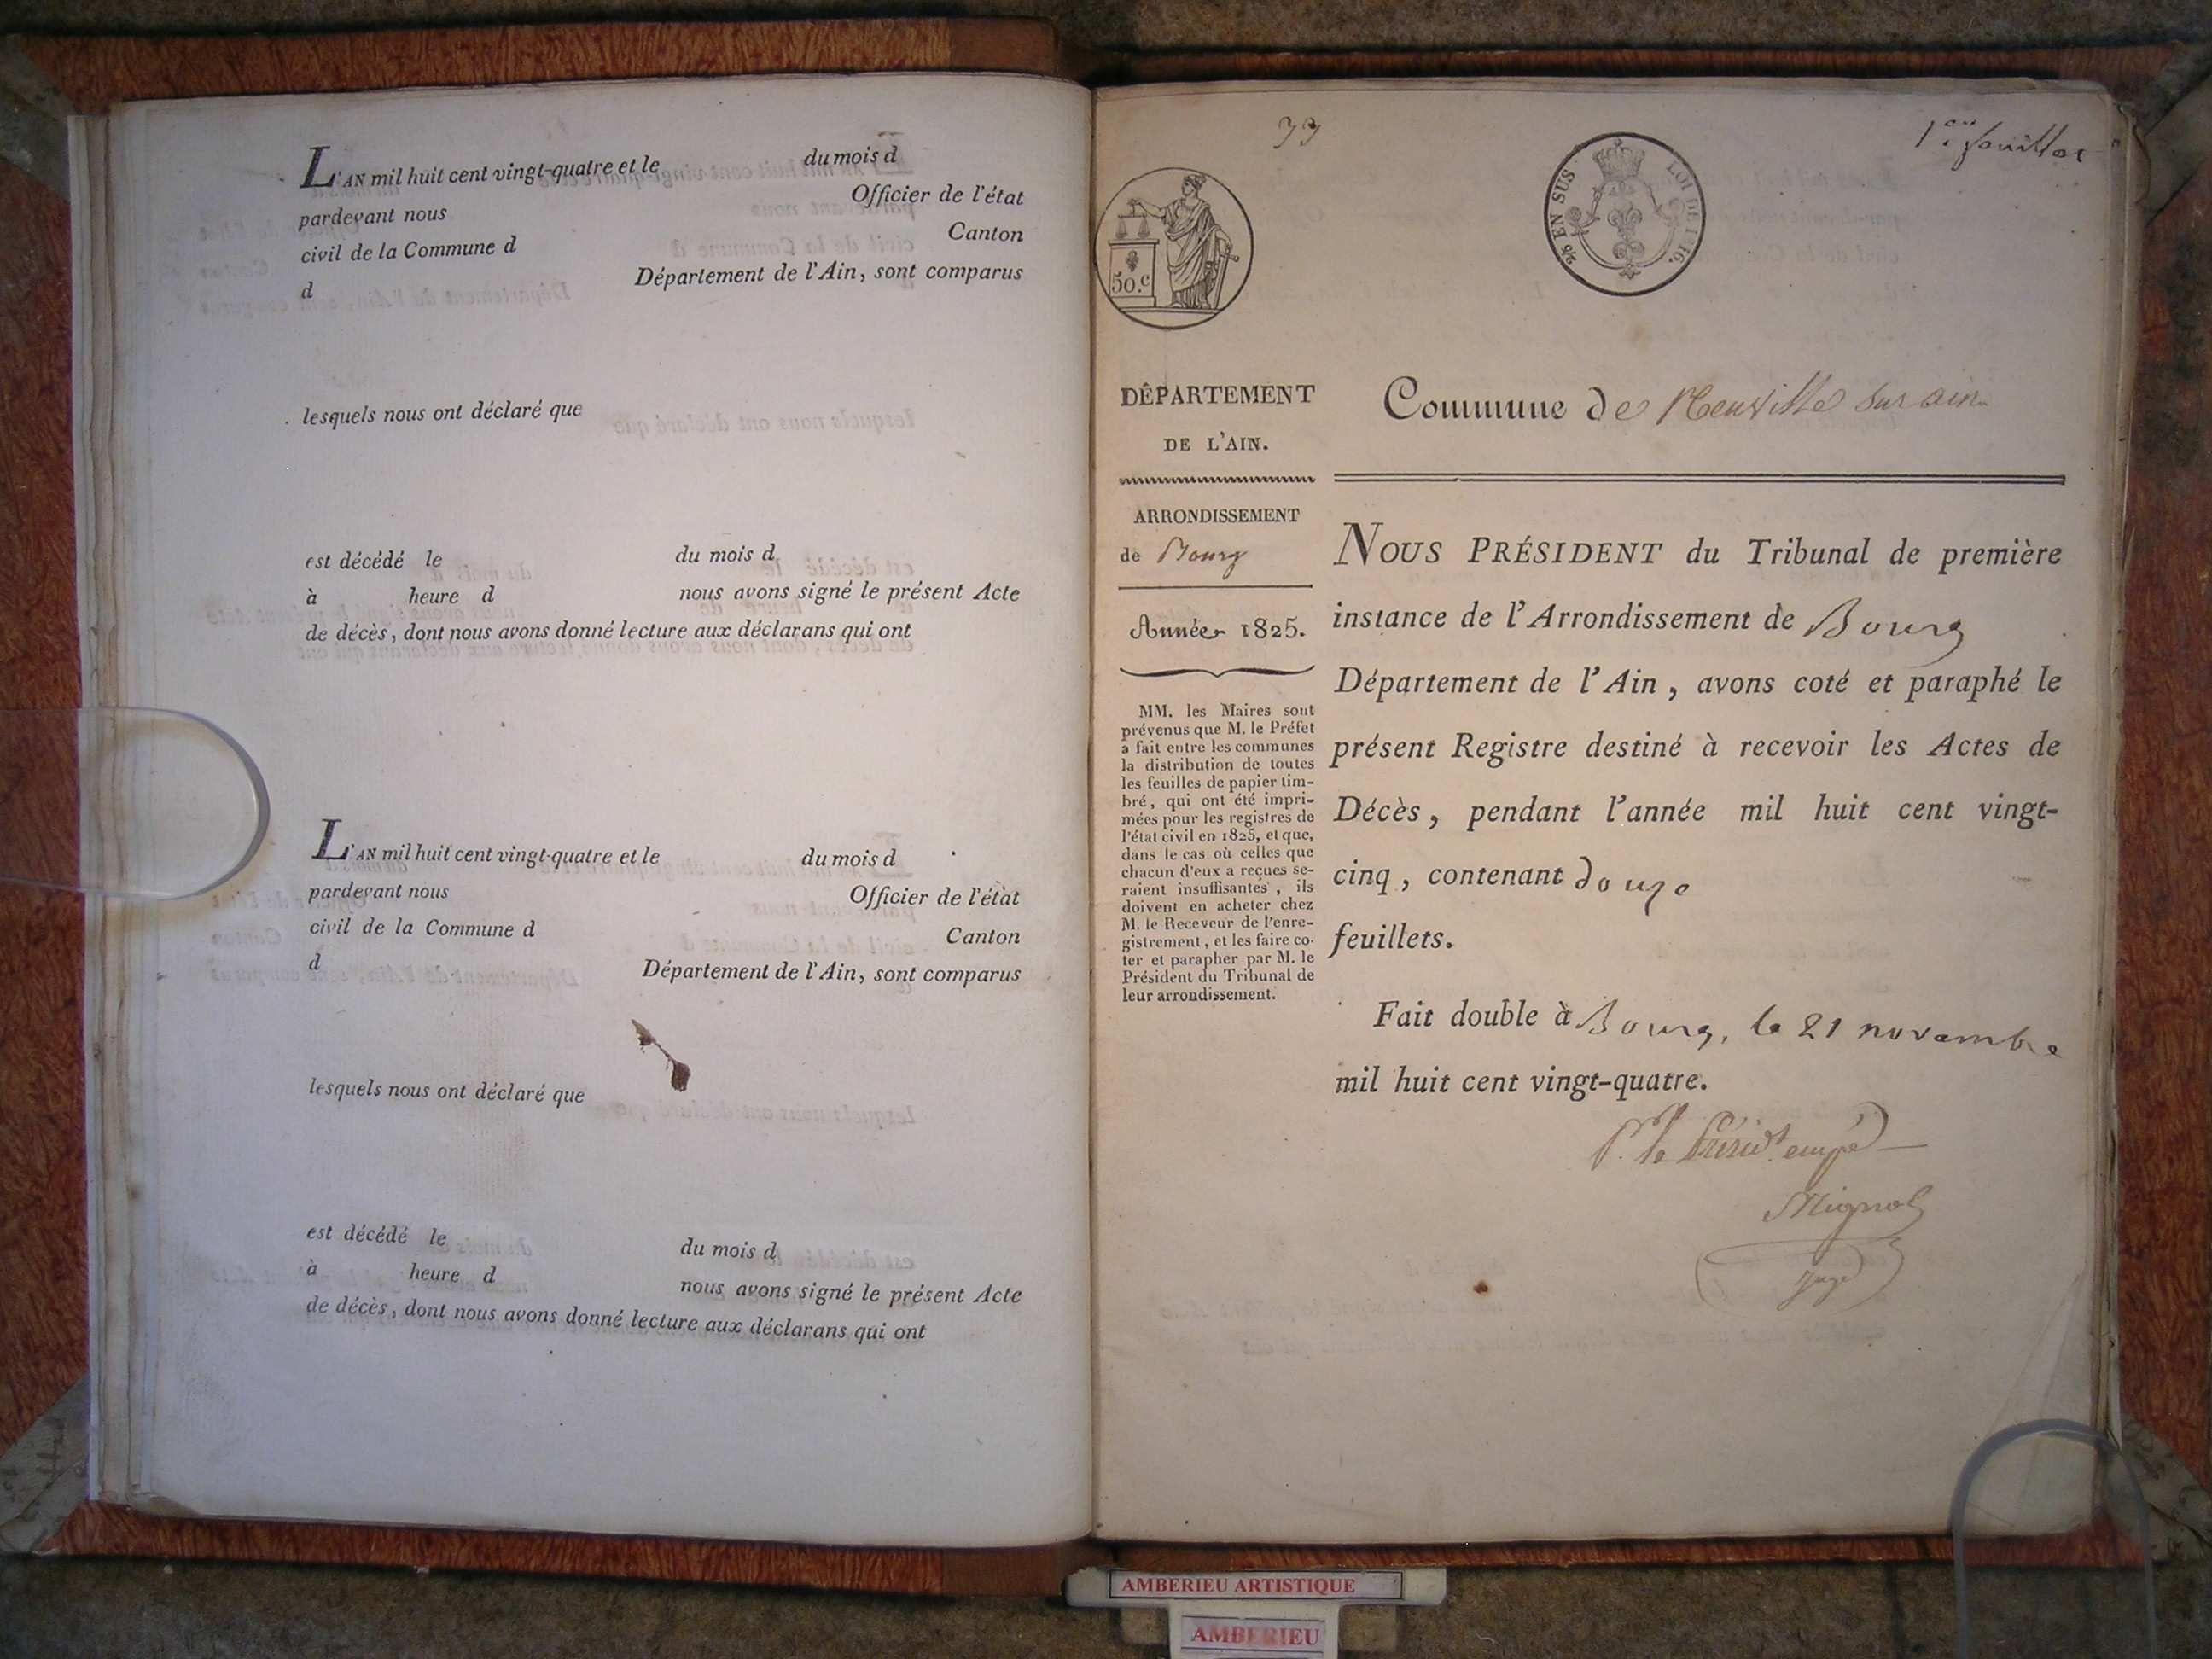 L'AN mil huit cent vingt-quatre et le du mois d
pardevant nous Officier de l'état
civil de la Commune d Canton
d Département de l'Ain, sont comparus
lesquels nous ont déclaré que
est décédé le du mois d
à heure d nous avons signé le présent Acte
de décès, dont nous avons donné lecture aux déclarans qui ont
L'AN mil huit cent vingt-quatre et le du mois d
pardevant nous Officier de l'état
civil de la Commune d Canton
d Département de l'Ain, sont comparus
lesquels nous ont déclaré que
est décédé le du mois d
à heure d nous avons signé le présent Acte
de décès, dont nous avons donné lecture aux déclarans qui ont
1.er feuillet
50.c
EN SUS
LOI DE 1816.
DÉPARTEMENT
DE L'AIN.
ARRONDISSEMENT
de Bourg
Année 1825.
MM. les Maires sont
prévenus que M. le Préfet
a fait entre les communes
la distribution de toutes
les feuilles de papier tim-
bré, qui ont été impri-
mées pour les registres de
l'état civil en 1825, et que,
dans le cas où celles que
chacun d'eux a reçues se-
raient insuffisantes, ils
doivent en acheter chez
M. le Receveur de l'enre-
gistrement, et les faire co-
ter et parapher par M. le
Président du Tribunal de
leur arrondissement.
Commune de Neuville sur ain
NOUS PRÉSIDENT du Tribunal de première
instance de l'Arrondissement de Bourg
Département de l'Ain, avons coté et paraphé le
présent Registre destiné à recevoir les Actes de
Décès, pendant l'année mil huit cent vingt-
cinq, contenant douze
feuillets.
Fait double à Bourg, le 21 novembre
mil huit cent vingt-quatre.
P. le Présid.t empé
Mignot
Juge
AMBERIEU ARTISTIQUE
AMBERIEU